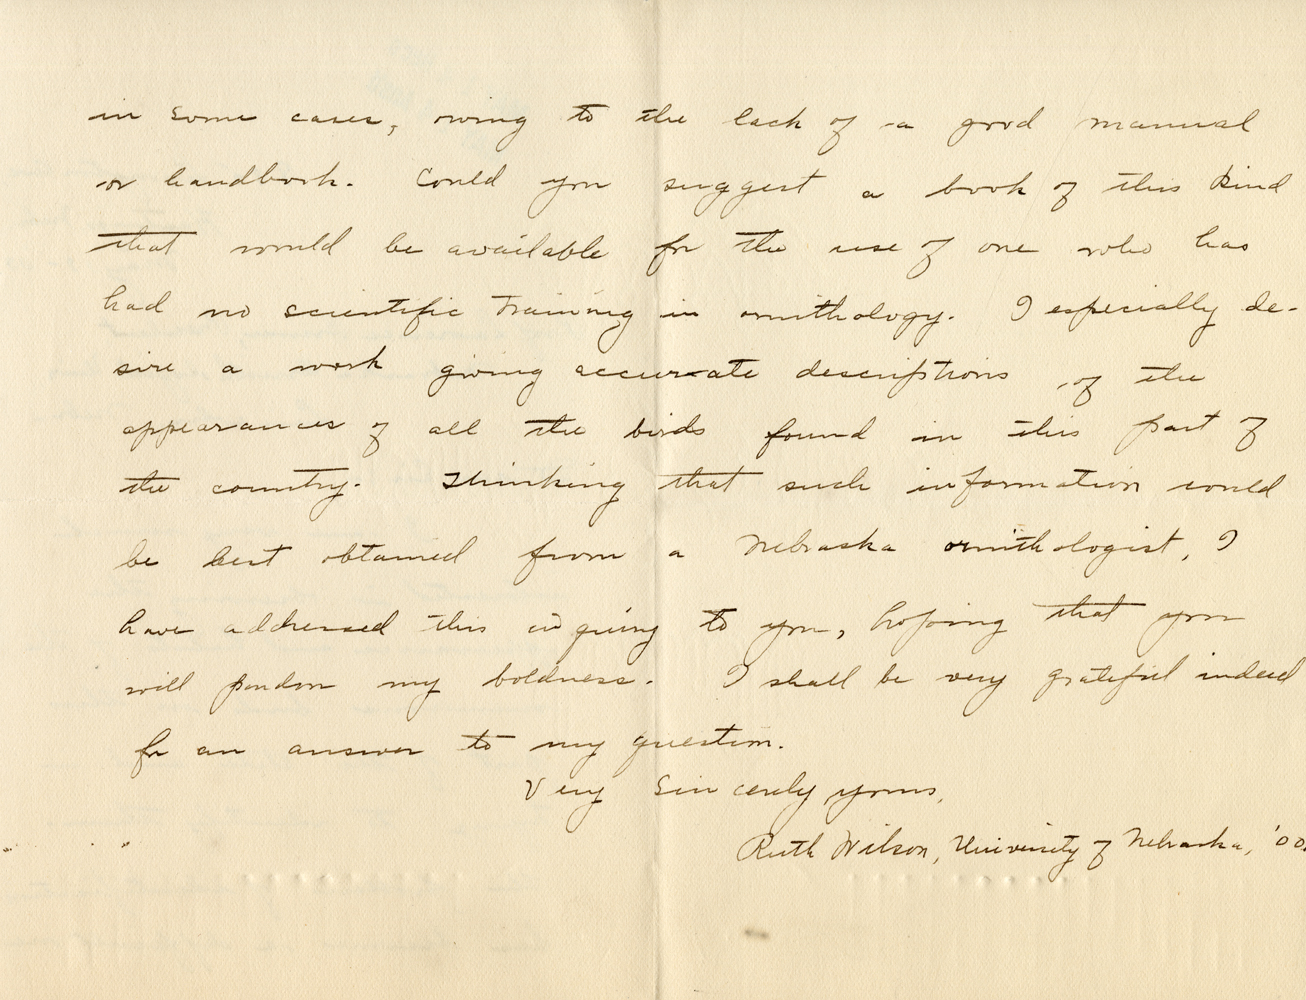 in some cases, owing to the lack of a good manual
or handbook. Could you suggest a book of this kind
that would be available for the use of one who has
had no scientific training in ornithology. I especially de-
sire a work giving accurate descriptions of the
appearances of all the birds found in this part of
the country. Thinking that such information could
be best obtained from a Nebraska ornithologist, I
have addressed this inquiry to you, hoping that you
will pardon my boldness. I shall be very grateful indeed
for an answer to my question.
Very sincerely yours,
Ruth Wilson, University of Nebraska, '00.